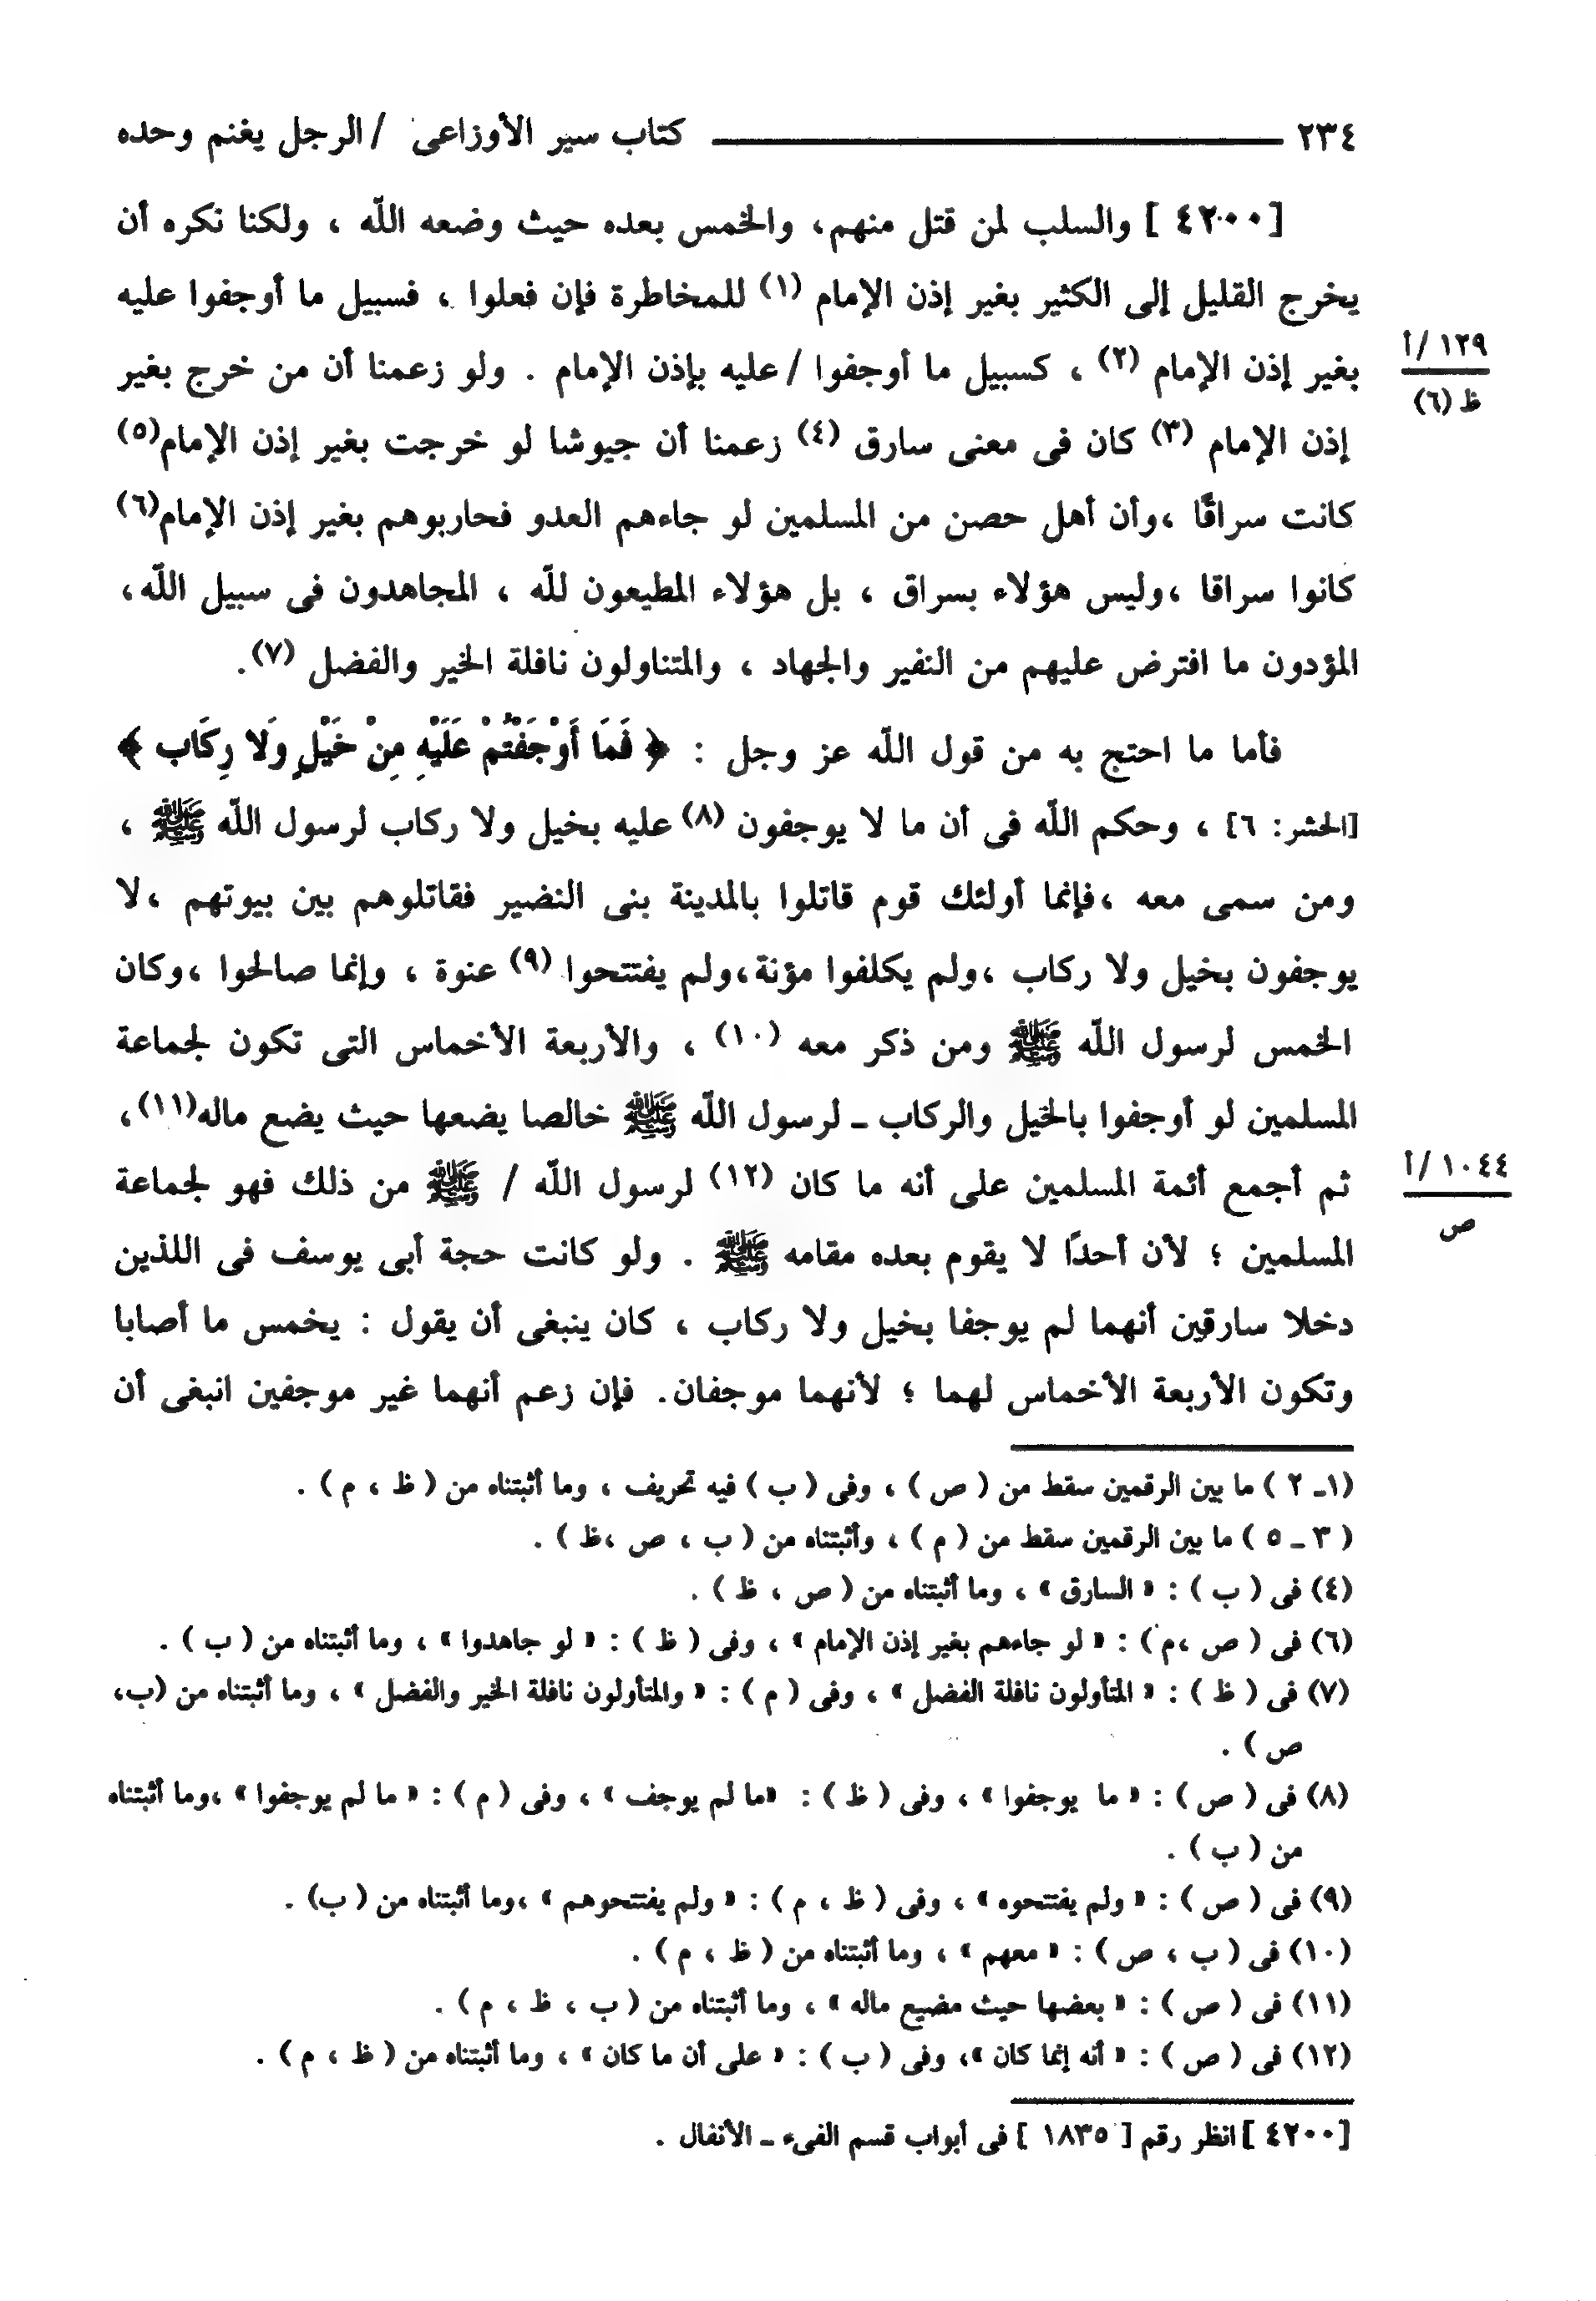 ٢٣٤ كتاب سير الأوزاعى / الرجل يغنم وحده
[٤٢٠٠] والسلب لمن قتل منهم، والخمس بعده حيث وضعه اللّه ، ولكنا نكره أن
يخرج القليل إلى الكثير بغير إذن الإمام (١) للمخاطرة فإن فعلوا ، فسبيل ما أوجفوا عليه
بغير إذن الإمام (٢) ، كسبيل ما أوجفوا / عليه بإذن الإمام . ولو زعمنا أن من خرج بغير
١٢٩/أ
ظ (٦)
إذن الإمام (٣) كان فى معنى سارق (٤) زعمنا أن جيوشا لو خرجت بغير إذن الإمام(٥)
كانت سراقًا ،وأن أهل حصن من المسلمين لو جاءهم العدو فحاربوهم بغير إذن الإمام(٦)
كانوا سراقا ،وليس هؤلاء بسراق ، بل هؤلاء المطيعون للّه ، المجاهدون فى سبيل اللّه،
المؤدون ما افترض عليهم من النفير والجهاد ، والمتناولون نافلة الخير والفضل (٧).
فأما ما احتج به من قول اللّه عز وجل : ﴿ فَمَا أَوْجَفْتُمْ عَلَيْهِ مِنْ خَيْلٍ وَلا رِكَاب ﴾
[الحشر: ٦] ، وحكم اللّه فى أن ما لا يوجفون (٨) عليه بخيل ولا ركاب لرسول اللّه ﷺ ،
ومن سمى معه ،فإنما أولئك قوم قاتلوا بالمدينة بنى النضير فقاتلوهم بين بيوتهم ،لا
يوجفون بخيل ولا ركاب ،ولم يكلفوا مؤنة،ولم يفتتحوا (٩) عنوة ، وإنما صالحوا ،وكان
الخمس لرسول اللّه ﷺ ومن ذكر معه (١٠) ، والأربعة الأخماس التى تكون لجماعة
المسلمين لو أوجفوا بالخيل والركاب ـ لرسول اللّه ﷺ خالصا يضعها حيث يضع ماله(١١)،
ثم أجمع أئمة المسلمين على أنه ما كان (١٢) لرسول اللّه / ﷺ من ذلك فهو لجماعة
١٠٤٤/أ
ص
المسلمين ؛ لأن أحدًا لا يقوم بعده مقامه ﷺ . ولو كانت حجة أبى يوسف فى اللذين
دخلا سارقين أنهما لم يوجفا بخيل ولا ركاب ، كان ينبغى أن يقول : يخمس ما أصابا
وتكون الأربعة الأخماس لهما ؛ لأنهما موجفان. فإن زعم أنهما غير موجفين انبغى أن
(١ـ ٢ ) ما بين الرقمين سقط من ( ص ) ، وفى ( ب ) فيه تحريف ، وما أثبتناه من ( ظ ، م ) .
( ٣ ـ ٥ ) ما بين الرقمين سقط من ( م ) ، وأثبتناه من ( ب ، ص ،ظ ) .
(٤) فى ( ب ) : « السارق » ، وما أثبتناه من ( ص ، ظ ) .
(٦) فى ( ص ،م ) : « لو جاءهم بغير إذن الإمام » ، وفى ( ظ ) : « لو جاهدوا » ، وما أثبتناه من ( ب ) .
(٧) فى ( ظ ) : « المتأولون نافلة الفضل » ، وفى ( م ) : « والمتأولون نافلة الخير والفضل » ، وما أثبتناه من (ب،
ص ) .
(٨) فى ( ص ) : « ما يوجفوا » ، وفى ( ظ ) : «ما لم يوجف » ، وفى ( م ) : « ما لم يوجفوا » ،وما أثبتناه
من ( ب ) .
(٩) فى ( ص ) : « ولم يفتتحوه » ، وفى ( ظ ، م ) : « ولم يفتتحوهم » ،وما أثبتناه من ( ب) .
(١٠) فى ( ب ، ص ) : « معهم » ، وما أثبتناه من ( ظ ، م ) .
(١١) فى ( ص ) : « بعضها حيث مضيع ماله » ، وما أثبتناه من ( ب ، ظ ، م ) .
(١٢) فى ( ص ) : « أنه إنما كان »، وفى ( ب ) : « على أن ما كان » ، وما أثبتناه من ( ظ ، م ) .
[٤٢٠٠] انظر رقم [ ١٨٣٥ ] فى أبواب قسم الفىء ـ الأنفال .